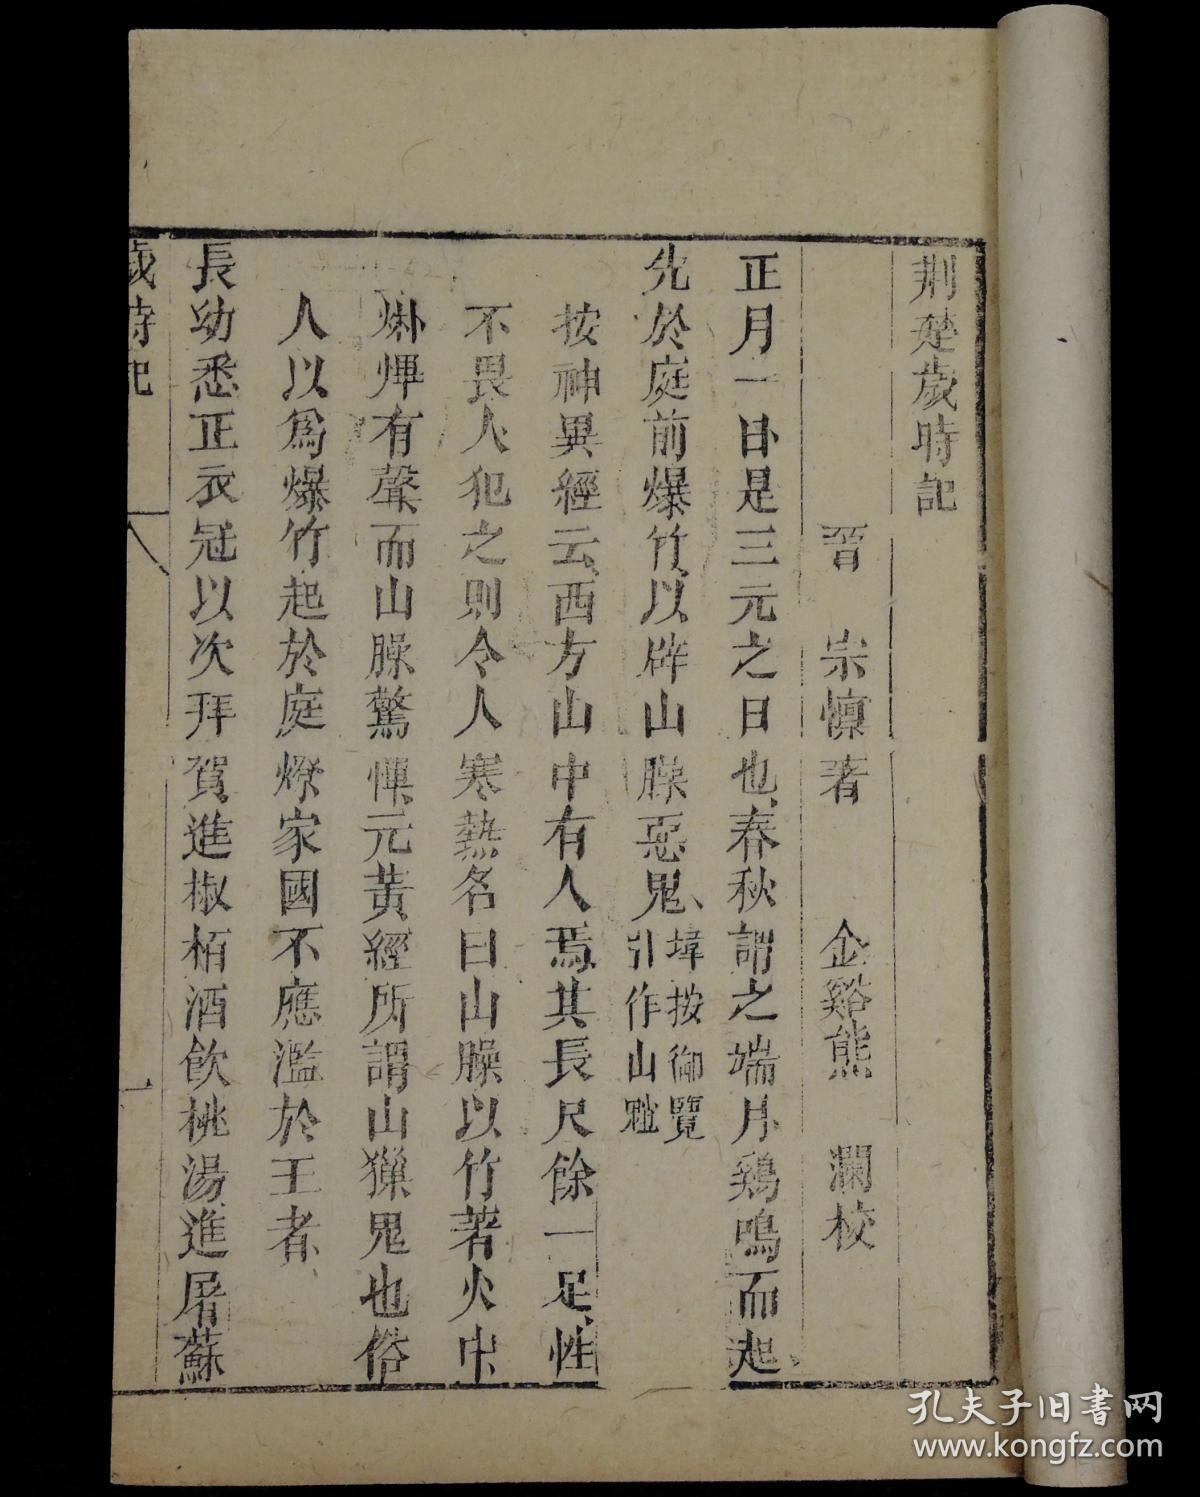 荆楚歲時記
晉 宗懍著 金谿熊 瀾校
正月一日是三元之日也春秋謂之端月鷄鳴而起
先於庭前爆竹以辟山臊惡鬼
堹按御覽
引作山魈
按神異經云西方山中有人焉其長尺餘一足性
不畏人犯之則令人寒熱名曰山臊以竹著火中
烞熚有聲而山臊驚憚元黃經所謂山㺐鬼也俗
人以爲爆竹起於庭燎家國不應濫於王者
長幼悉正衣冠以次拜賀進椒栢酒飲桃湯進屠蘇
歲時記 一
孔夫子旧书网
www.kongfz.com